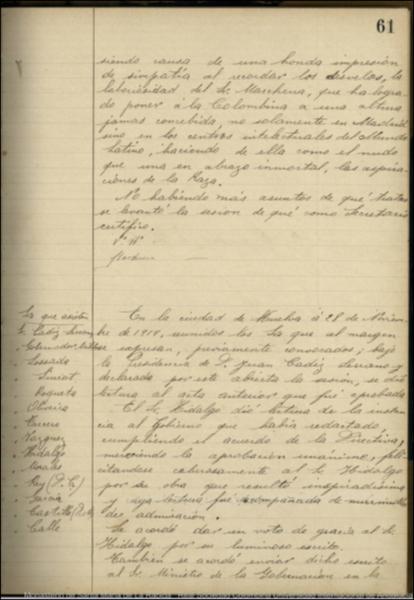 61
siendo causa de una honda impresión
de simpatía al recordar los desvelos, la
laboriosidad del Sr. Marchena, que ha logra-
do poner á la Colombina a una altura
jamas concebida, no solamente en Madrid
sino en los centros intelectuales del Mundo
Latino, haciendo de ella como el nudo
que una en abrazo inmortal, las aspira-
ciones de la Raza.
No habiendo más asuntos de que tratar
se levantó la sesion de que como Secretario
certifico.
Vº Bº
Sres que asisten
Sr. Cadiz Serrano
Gobernador
Lossada
Siurot
Oliveira
Vazquez
Hidalgo
Morales
Rey (D. C.)
Garcia
Castillo
Calle
En la ciudad de Huelva á 28 de Noviem-
bre de 1919, reunidos los Sres que al margen
se expresan, previamente convocados; bajo
la Presidencia de D. Juan Cadiz Serrano y
declarada por este abierta la sesión, se dió
lectura al acta anterior que fué aprobada
El Sr. Hidalgo dió lectura de la instan-
cia al Gobierno que había redactado,
cumpliendo el acuerdo de la Directiva,
mereciendo la aprobación unánime, feli-
citandose calurosamente al Sr. Hidalgo
por su obra que resultó inspiradisima
y cuya lectura fué acompañada de
de admiración.
Se acordó dar un voto de gracia al Sr.
Hidalgo por su luminoso escrito.
Tambien se acordó enviar dicho escrito
al Sr. Ministro de la Gobernación en la